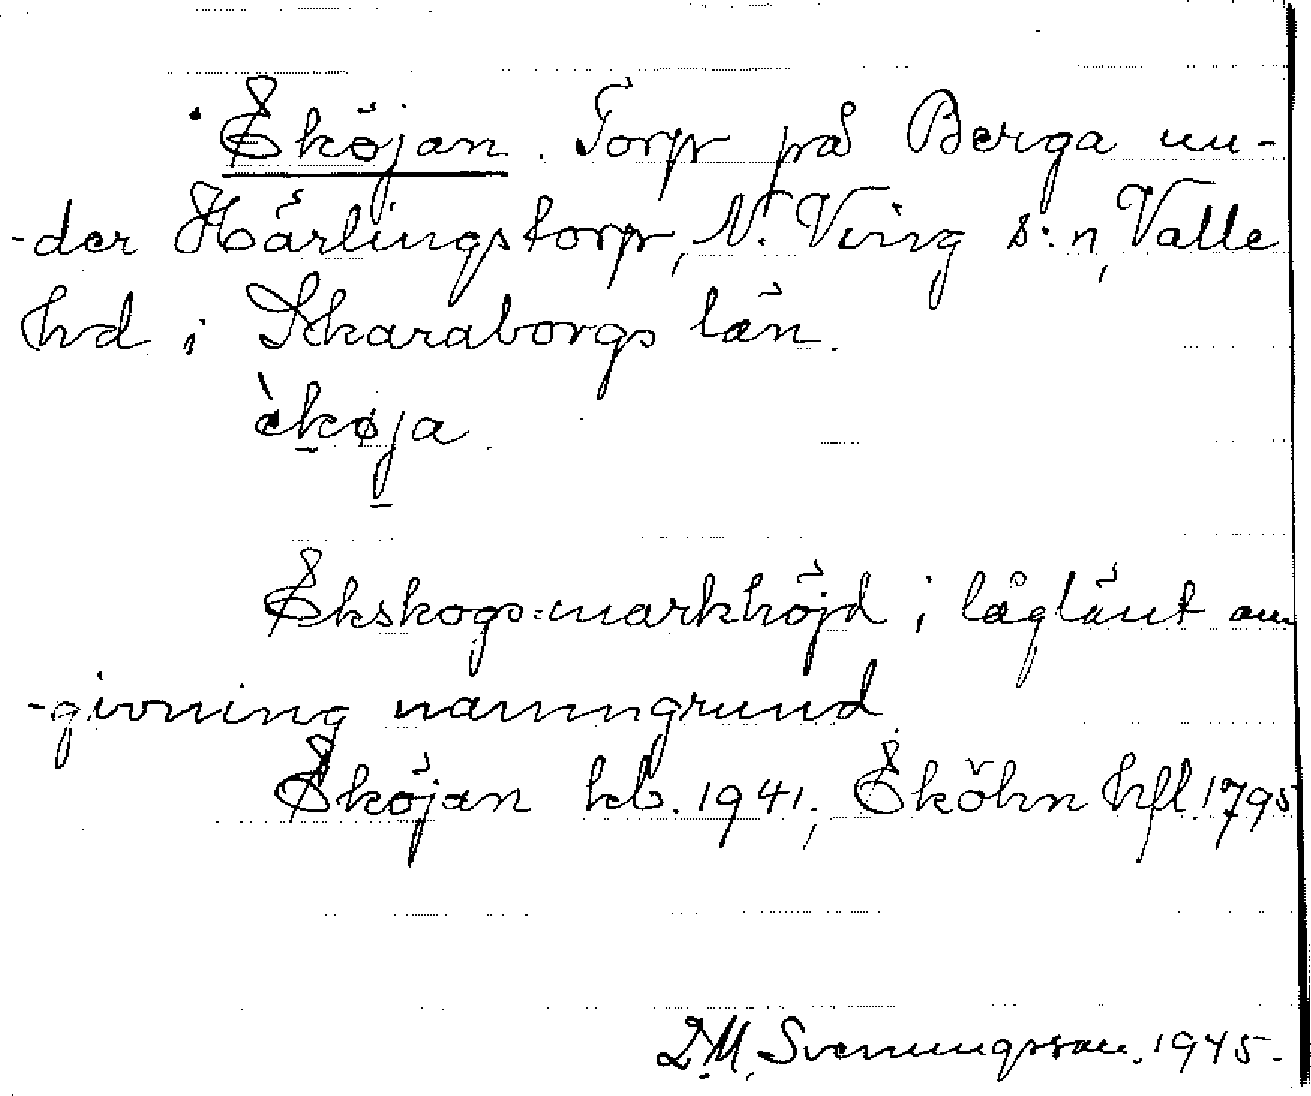 Eköjan. Torp på Berga un-
-der Härlingstorp, N. Ving s:n, Valle
hd i Skaraborgs län.
èkøja.
Ekskogs=markhöjd i låglänt om-
-givning namngrund
Eköjan kb. 1941; Eköhn hfl. 1795
D.M. Svenungsson. 1945.